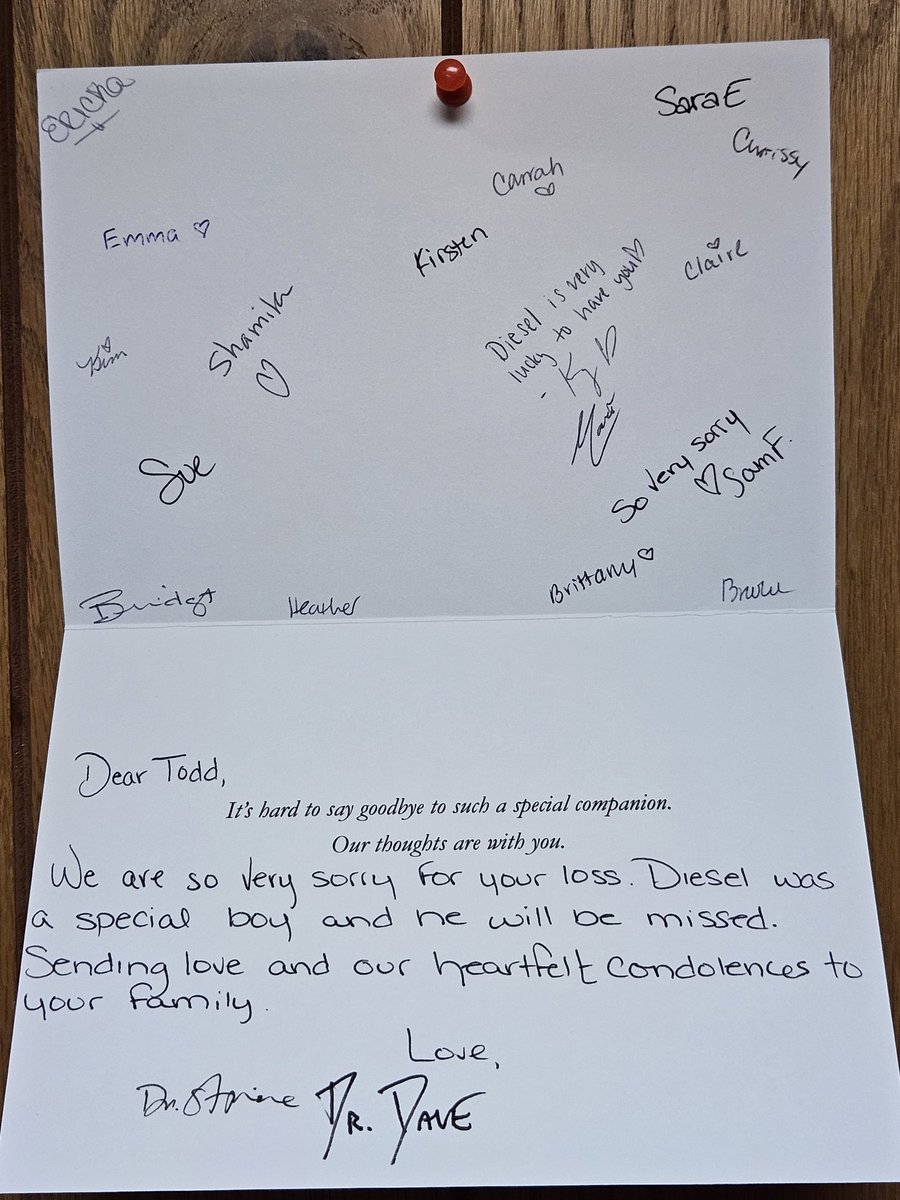 Ericka
Sara E
Chrissy
Carrah
Emma
Kirsten
Claire
Diesel is very
lucky to have you
Kim
Shamika
So very sorry
Sam F.
Sue
Brittany
Bridget
Heather
Dear Todd,
It's hard to say goodbye to such a special companion.
Our thoughts are with you.
We are so very sorry for your loss. Diesel was
a special boy and he will be missed.
Sending love and our heartfelt condolences to
your family.
Love,
Dr. Dave